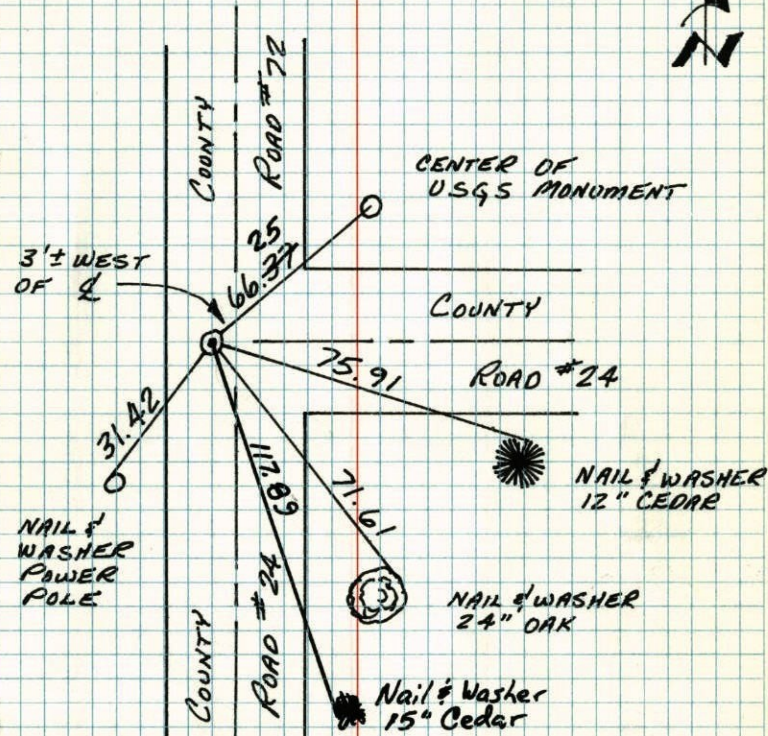 N
COUNTY
ROAD #72
CENTER OF
USGS MONUMENT
3'± WEST
OF ℄
25
66.37
COUNTY
ROAD #24
75.91
31.42
117.89
71.61
NAIL & WASHER
12" CEDAR
NAIL &
WASHER
POWER
POLE
NAIL & WASHER
24" OAK
COUNTY
ROAD #24
Nail & Washer
15" Cedar